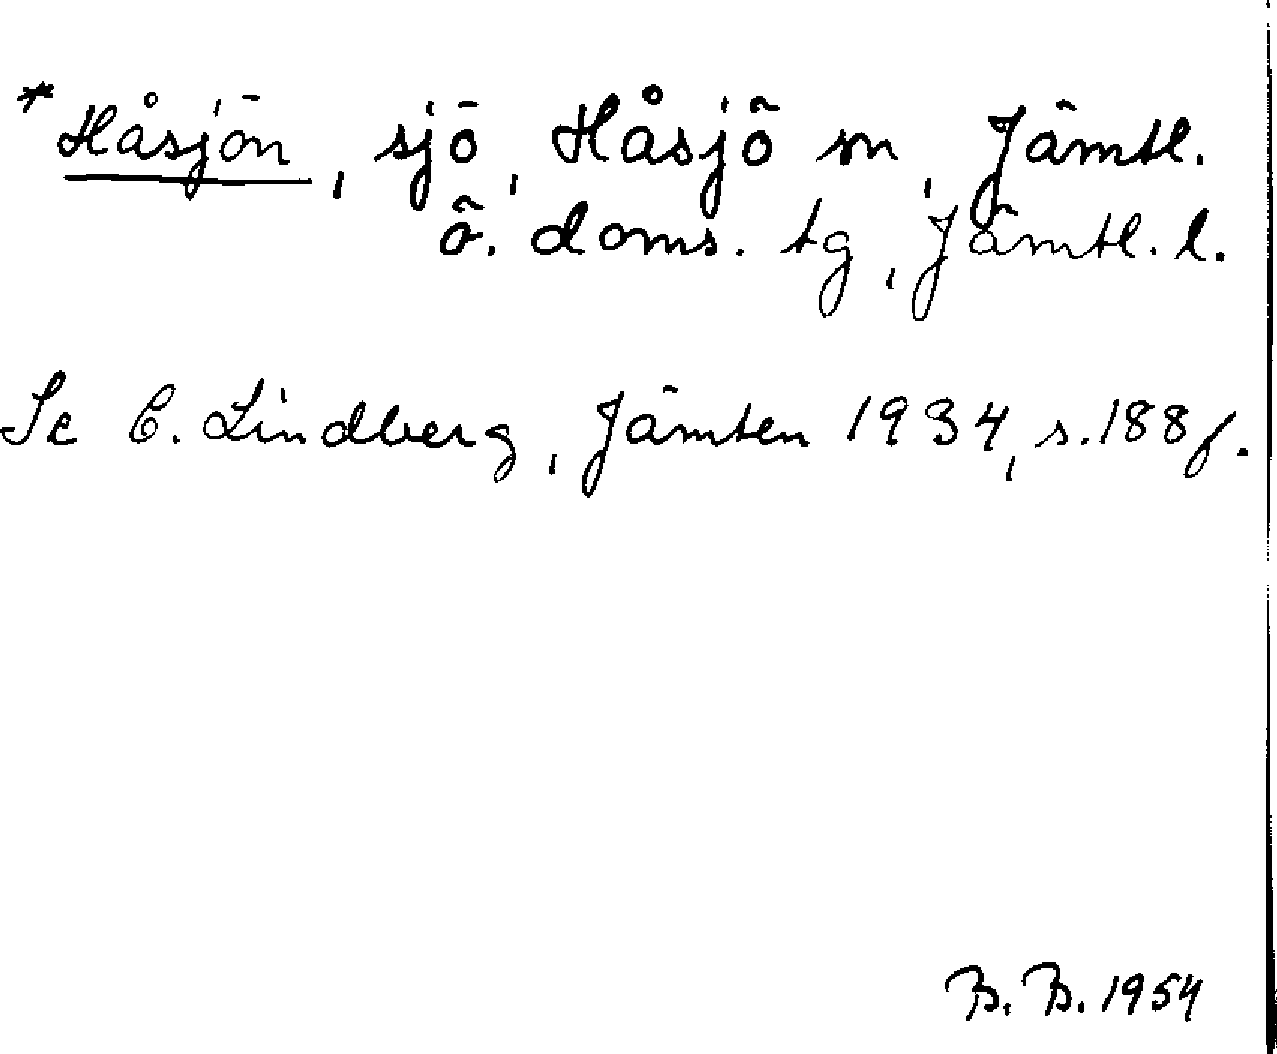 *Håsjön, sjö, Håsjö sn, Jämtl.
ö. doms. tg, Jämtl. l.
Se C. Lindberg, Jämten 1934, s. 188 f.
B. B. 1954